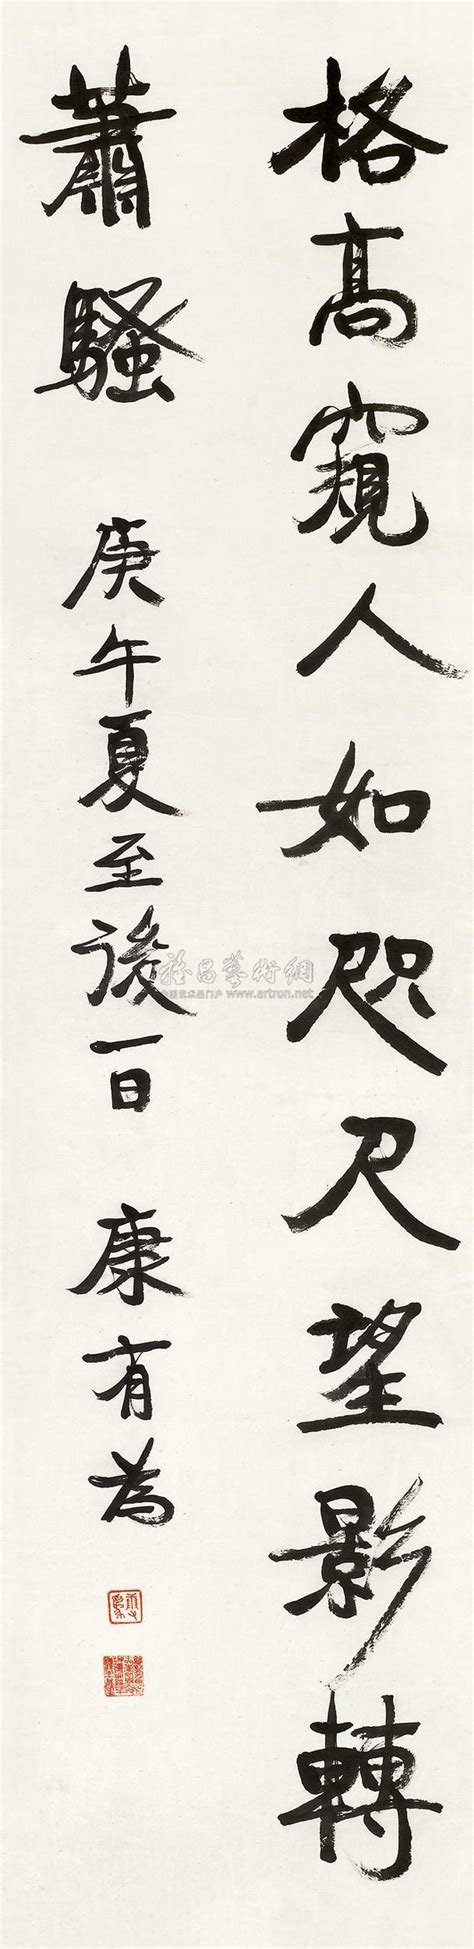 格高窺人如咫尺望影轉
蕭騷
庚午夏至後一日
康有為
www.artron.net